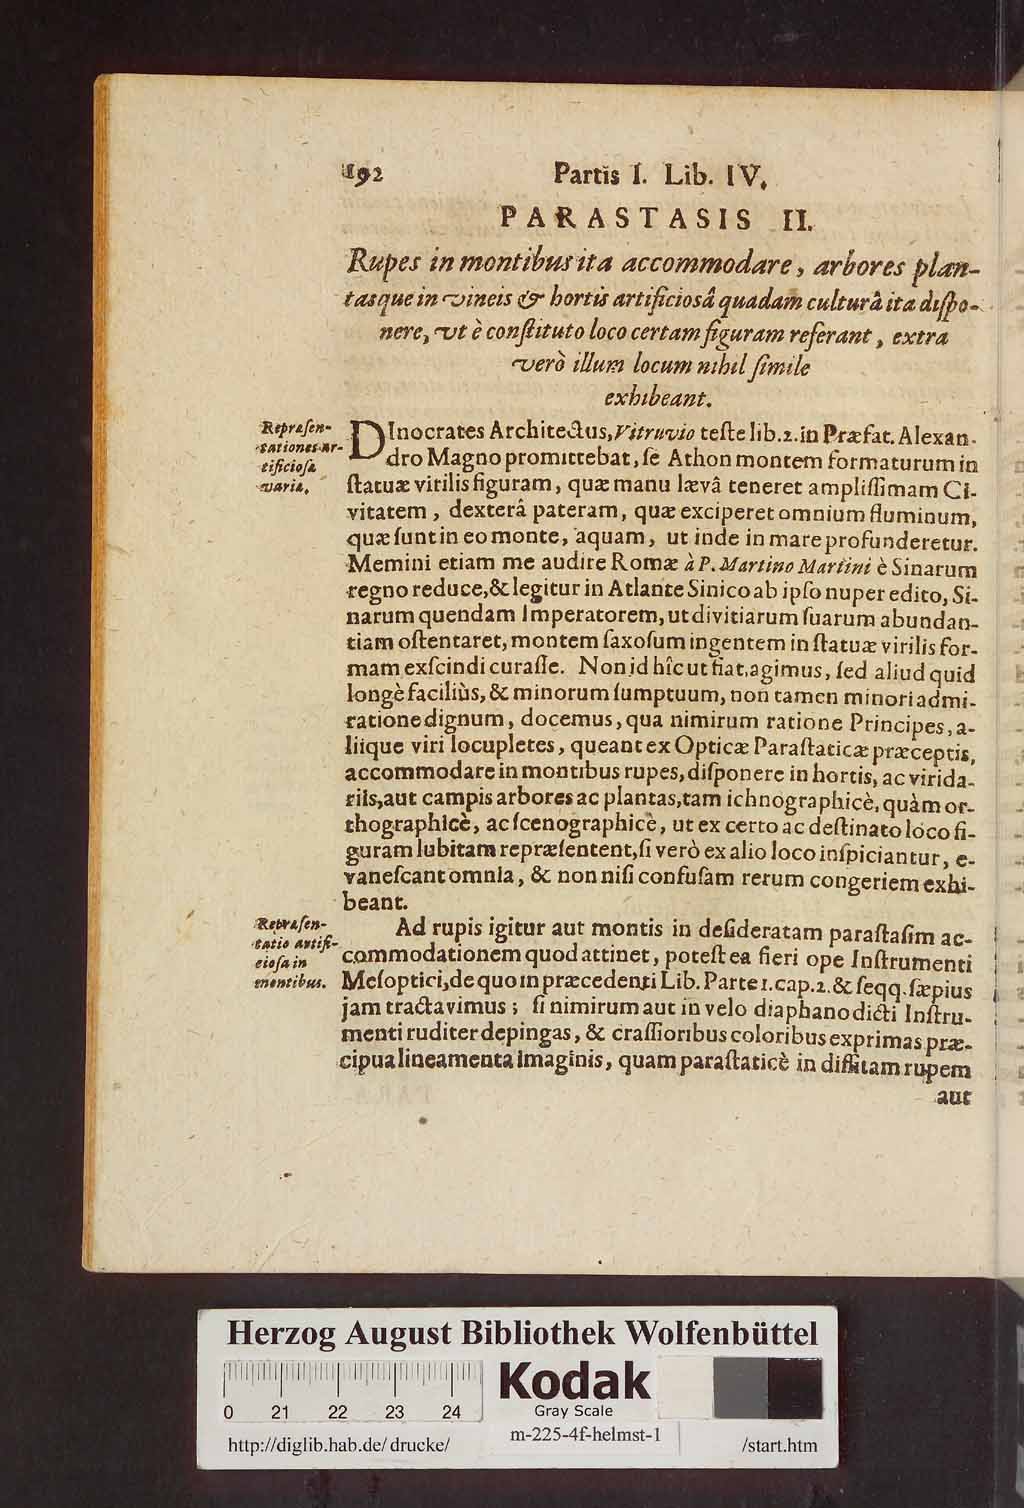 192 Partis I. Lib. IV.
PARASTASIS II.
Rupes in montibus ita accommodare, arbores plan-
tasque in vineis & hortis artificiosâ quadam culturâ ita dispo-
nere, vt è constituto loco certam figuram referant, extra
verò illum locum nihil simile
exhibeant.
Repræsen-
tationes ar-
tificiosæ
variæ.
DInocrates Architectus, Vitruvio teste lib. 2. in Præfat. Alexan-
dro Magno promittebat, se Athon montem formaturum in
statuæ virilis figuram, quæ manu lævâ teneret amplissimam Ci-
vitatem, dexterâ pateram, quæ exciperet omnium fluminum,
quæ sunt in eo monte, aquam, ut inde in mare profunderetur.
Memini etiam me audire Romæ à P. Martino Martini è Sinarum
regno reduce, & legitur in Atlante Sinico ab ipso nuper edito, Si-
narum quendam Imperatorem, ut divitiarum suarum abundan-
tiam ostentaret, montem saxosum ingentem in statuæ virilis for-
mam exscindi curasse. Non id hîc ut fiat, agimus, sed aliud quid
longè faciliùs, & minorum sumptuum, non tamen minori admi-
ratione dignum, docemus, qua nimirum ratione Principes, a-
liique viri locupletes, queant ex Opticæ Parastaticæ præceptis,
accommodare in montibus rupes, disponere in hortis, ac virida-
riis, aut campis arbores ac plantas, tam ichnographicè, quàm or-
thographicè, ac scenographicè, ut ex certo ac destinato loco fi-
guram lubitam repræsentent, si verò ex alio loco inspiciantur, e-
vanescant omnia, & non nisi confusam rerum congeriem exhi-
beant.
Repræsen-
tatio artifi-
ciosa in
montibus.
Ad rupis igitur aut montis in desideratam parastasim ac-
commodationem quod attinet, potest ea fieri ope Instrumenti
Mesoptici, de quo in præcedenti Lib. Parte 1. cap. 2. & seqq. sæpius
jam tractavimus; si nimirum aut in velo diaphano dicti Instru-
menti ruditer depingas, & crassioribus coloribus exprimas præ-
cipua lineamenta imaginis, quam parastaticè in dissitam rupem
aut
Herzog August Bibliothek Wolfenbüttel
0 21 22 23 24
Kodak
Gray Scale
http://diglib.hab.de/drucke/ m-225-4f-helmst-1 /start.htm